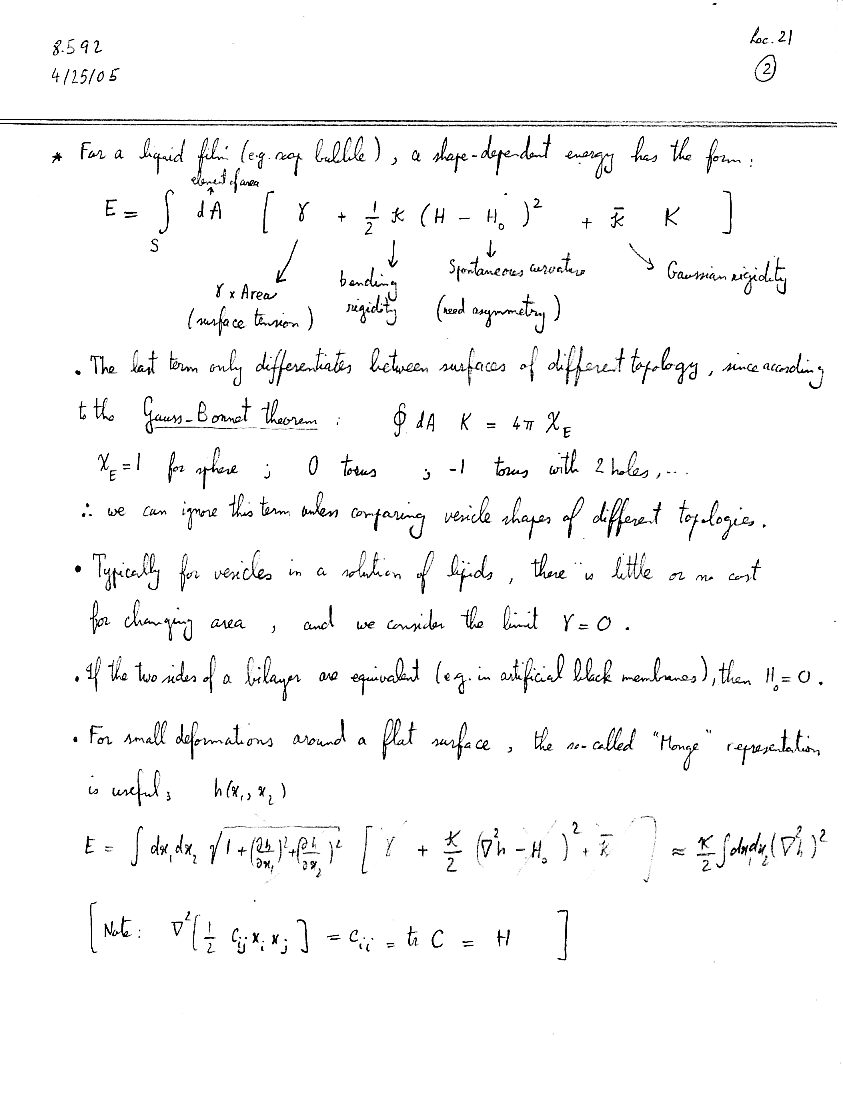 8.592
Lec. 21
4/25/05
2
* For a liquid film (e.g. soap bubble), a shape-dependent energy has the form:
element of area
E = ∫_S dA [ γ + 1/2 κ (H - H₀)² + κ̄ K ]
γ x Area
(surface tension)
bending
rigidity
Spontaneous curvature
(need asymmetry)
Gaussian rigidity
• The last term only differentiates between surfaces of different topology, since according
to the Gauss-Bonnet theorem : ∮ dA K = 4π χ_E
χ_E = 1 for sphere ; 0 torus ; -1 torus with 2 holes, ...
∴ we can ignore this term unless comparing vesicle shapes of different topologies.
• Typically for vesicles in a solution of lipids, there is little or no cost
for changing area, and we consider the limit γ = 0.
• If the two sides of a bilayer are equivalent (e.g. in artificial black membranes), then H₀ = 0.
• For small deformations around a flat surface, the so-called "Monge" representation
is useful; h(x₁, x₂)
E = ∫ dx₁ dx₂ √(1 + (∂h/∂x₁)² + (∂h/∂x₂)²) [ γ + κ/2 (∇²h - H₀)² + κ̄ ] ≈ κ/2 ∫ dx₁ dx₂ (∇²h)²
[Note: ∇²[1/2 C_ij x_i x_j] = C_ii = tr C = H ]